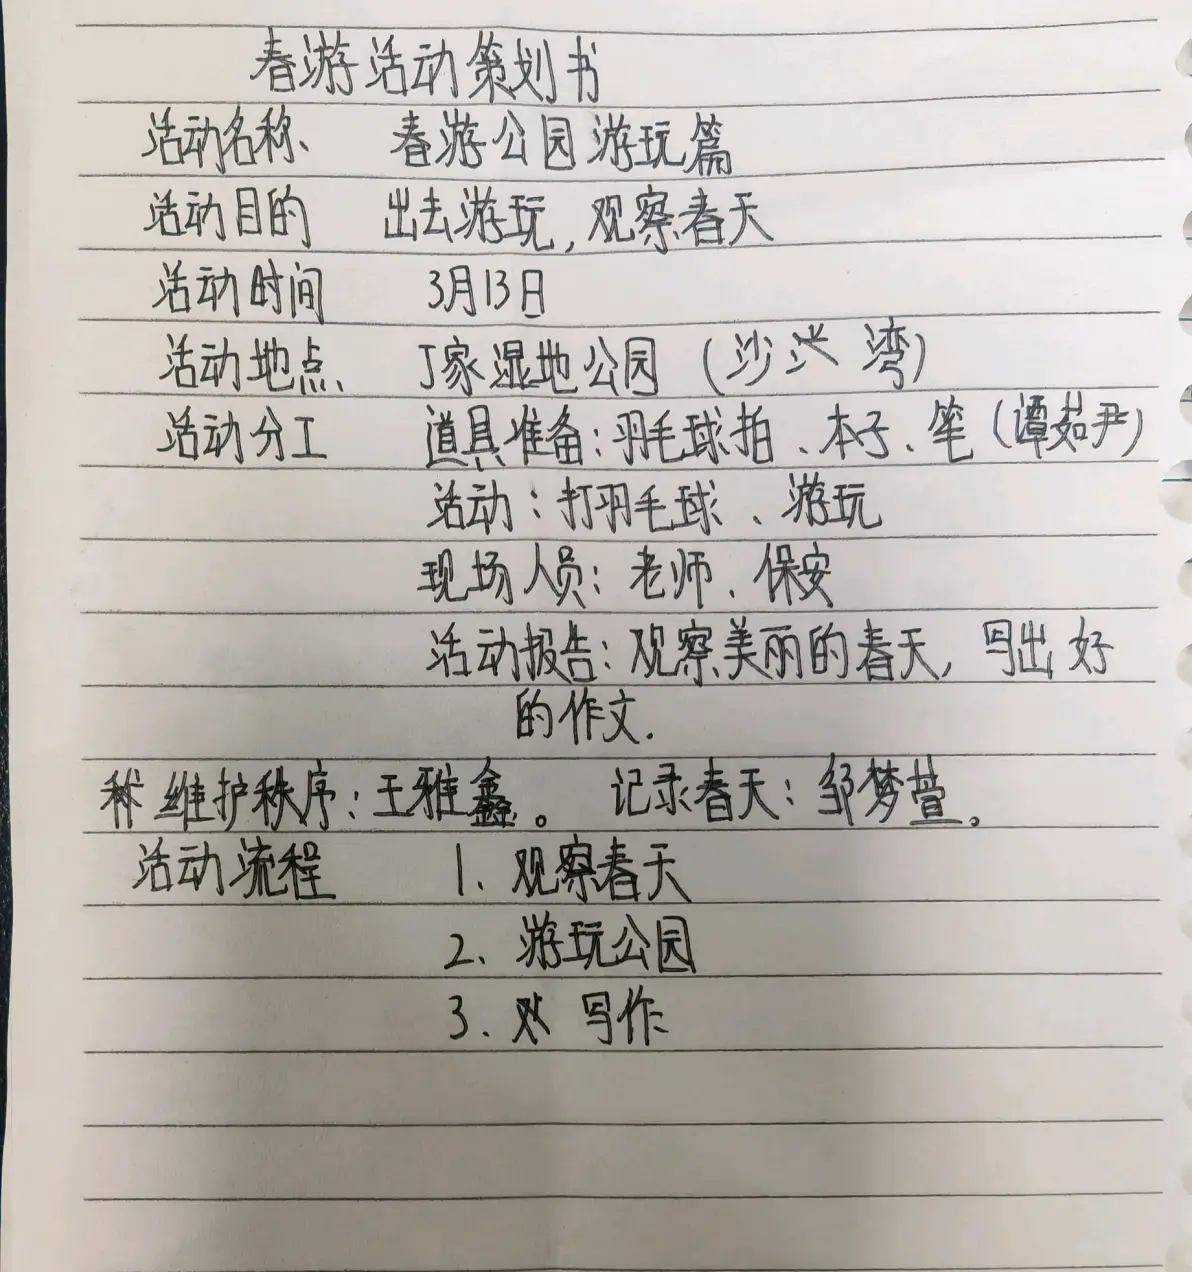 春游活动策划书
活动名称、 春游公园游玩篇
活动目的 出去游玩,观察春天
活动时间 3月13日
活动地点、 丁家湿地公园 (沙 湾)
活动分工 道具准备:羽毛球拍、本子、笔(谭茹尹)
活动:打羽毛球、游玩
现场人员:老师、保安
活动报告:观察美丽的春天,写出好
的作文.
维护秩序:王雅鑫。 记录春天:邹梦萱。
活动流程 1、观察春天
2、游玩公园
3、写作